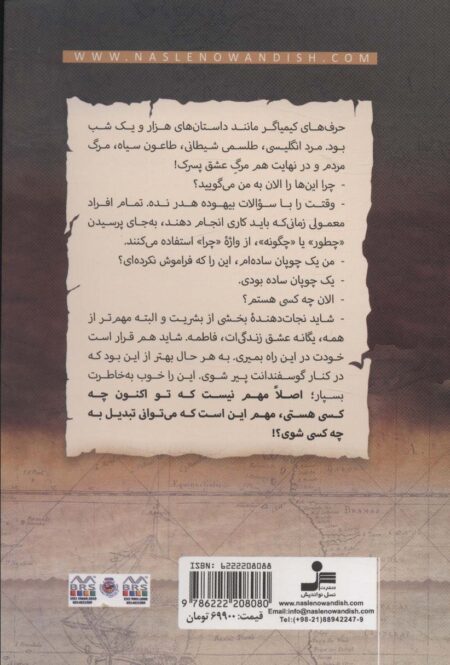 WWW.NASLENOWANDISH.COM
حرف‌های کیمیاگر مانند داستان‌های هزار و یک شب
بود. مرد انگلیسی، طلسمی شیطانی، طاعون سیاه، مرگ
مردم و در نهایت هم مرگِ عشق پسرک!
- چرا این‌ها را الان به من می‌گویید؟
- وقتت را با سؤالات بیهوده هدر نده. تمام افراد
معمولی زمانی‌که باید کاری انجام دهند، به‌جای پرسیدن
«چطور» یا «چگونه»، از واژهٔ «چرا» استفاده می‌کنند.
- من یک چوپان ساده‌ام، این را که فراموش نکرده‌ای؟
- یک چوپان ساده بودی.
- الان چه کسی هستم؟
- شاید نجات‌دهندهٔ بخشی از بشریت و البته مهم‌تر از
همه، یگانه عشق زندگی‌ات، فاطمه. شاید هم قرار است
خودت در این راه بمیری. به هر حال بهتر از این بود که
در کنار گوسفندانت پیر شوی. این را خوب به‌خاطرت
بسپار؛ اصلاً مهم نیست که تو اکنون چه
کسی هستی، مهم این است که می‌توانی تبدیل به
چه کسی شوی؟!
ISBN: 6222208088
9 786222 208080
قیمت: ۶۹۹۰۰ تومان
نسل نواندیش
www.naslenowandish.com
info@naslenowandish.com
Tel:(+98-21)88942247-9
BRS
BRS